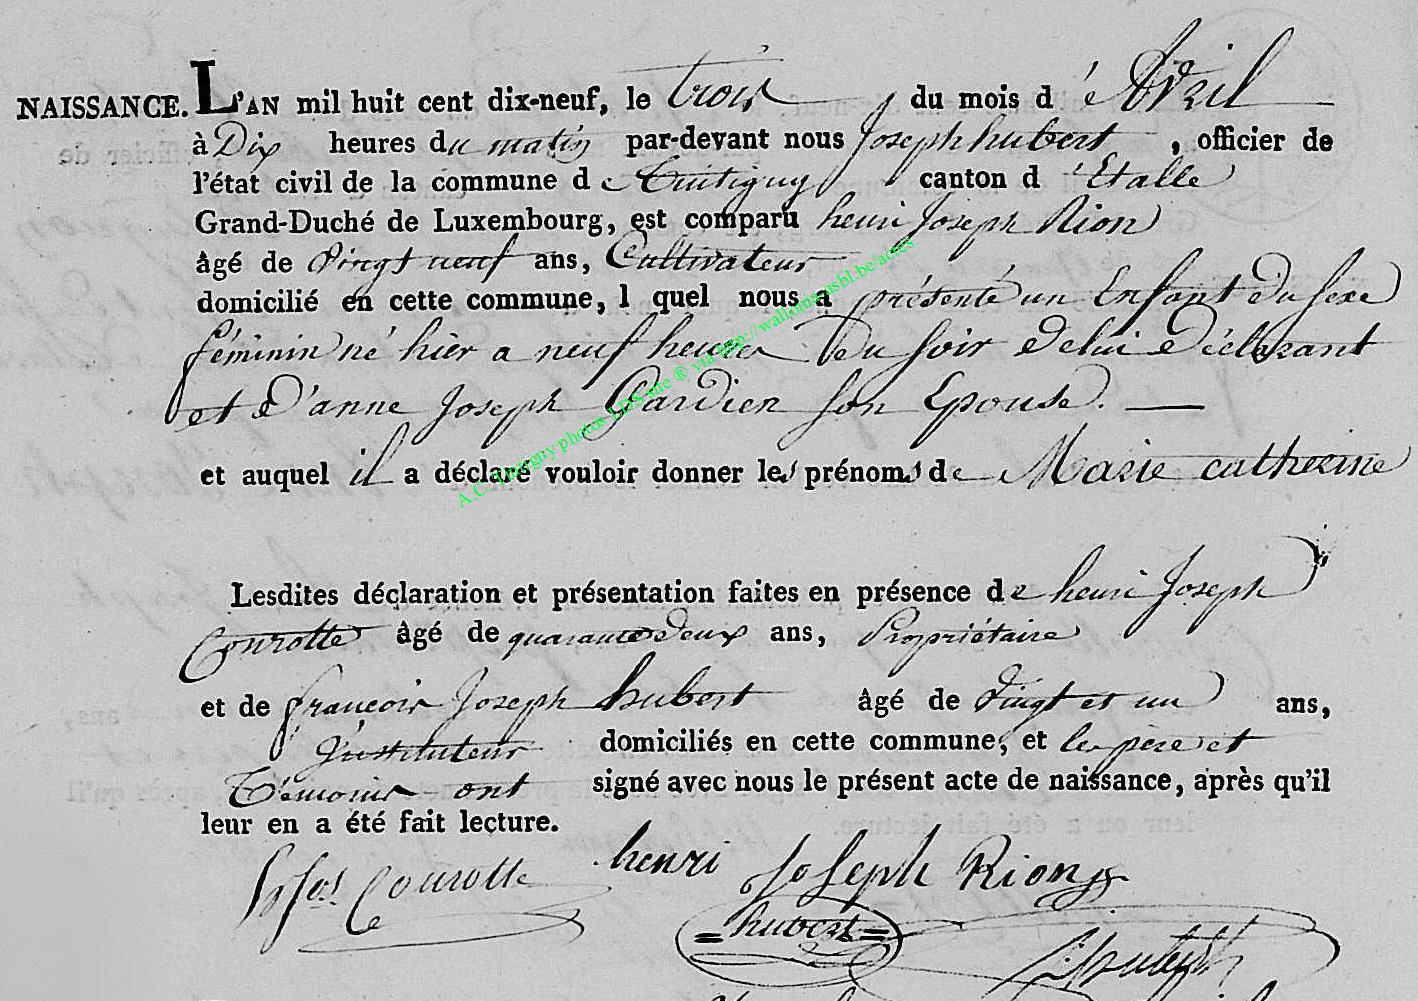 NAISSANCE. L'AN mil huit cent dix-neuf, le trois du mois d'Avril
à Dix heures du matin par-devant nous Joseph hubert, officier de
l'état civil de la commune de Tintigny canton d'Etalle
Grand-Duché de Luxembourg, est comparu henri Joseph Rion
âgé de Vingt neuf ans, Cultivateur
domicilié en cette commune, l quel nous a présenté un Enfant du sexe
féminin né hier a neuf heures Du soir De lui Déclarant
et D'anne Joseph Gardien son Epouse.
et auquel il a déclaré vouloir donner les prénoms de Marie catherine
Lesdites déclaration et présentation faites en présence de henri Joseph
Courotte âgé de quarante Deux ans, Propriétaire
et de françois Joseph hubert âgé de Vingt et un ans,
Instituteur domiciliés en cette commune, et les père et
Témoins ont signé avec nous le présent acte de naissance, après qu'il
leur en a été fait lecture.
hJos Courotte henri Joseph Rion
hubert
A.C. Tintigny photos LDS site ® via http://wallonia-asbl.be/actes